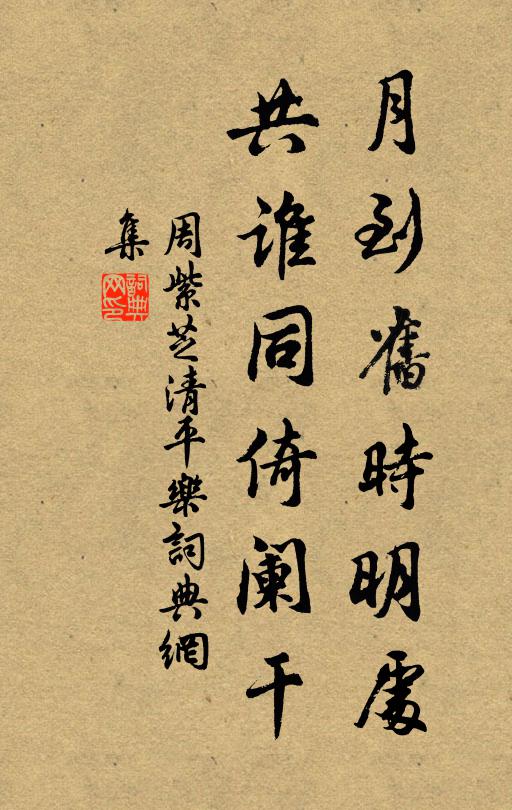 月到舊時明處
共誰同倚闌干
周紫芝清平樂詞典網
集
詞典網印